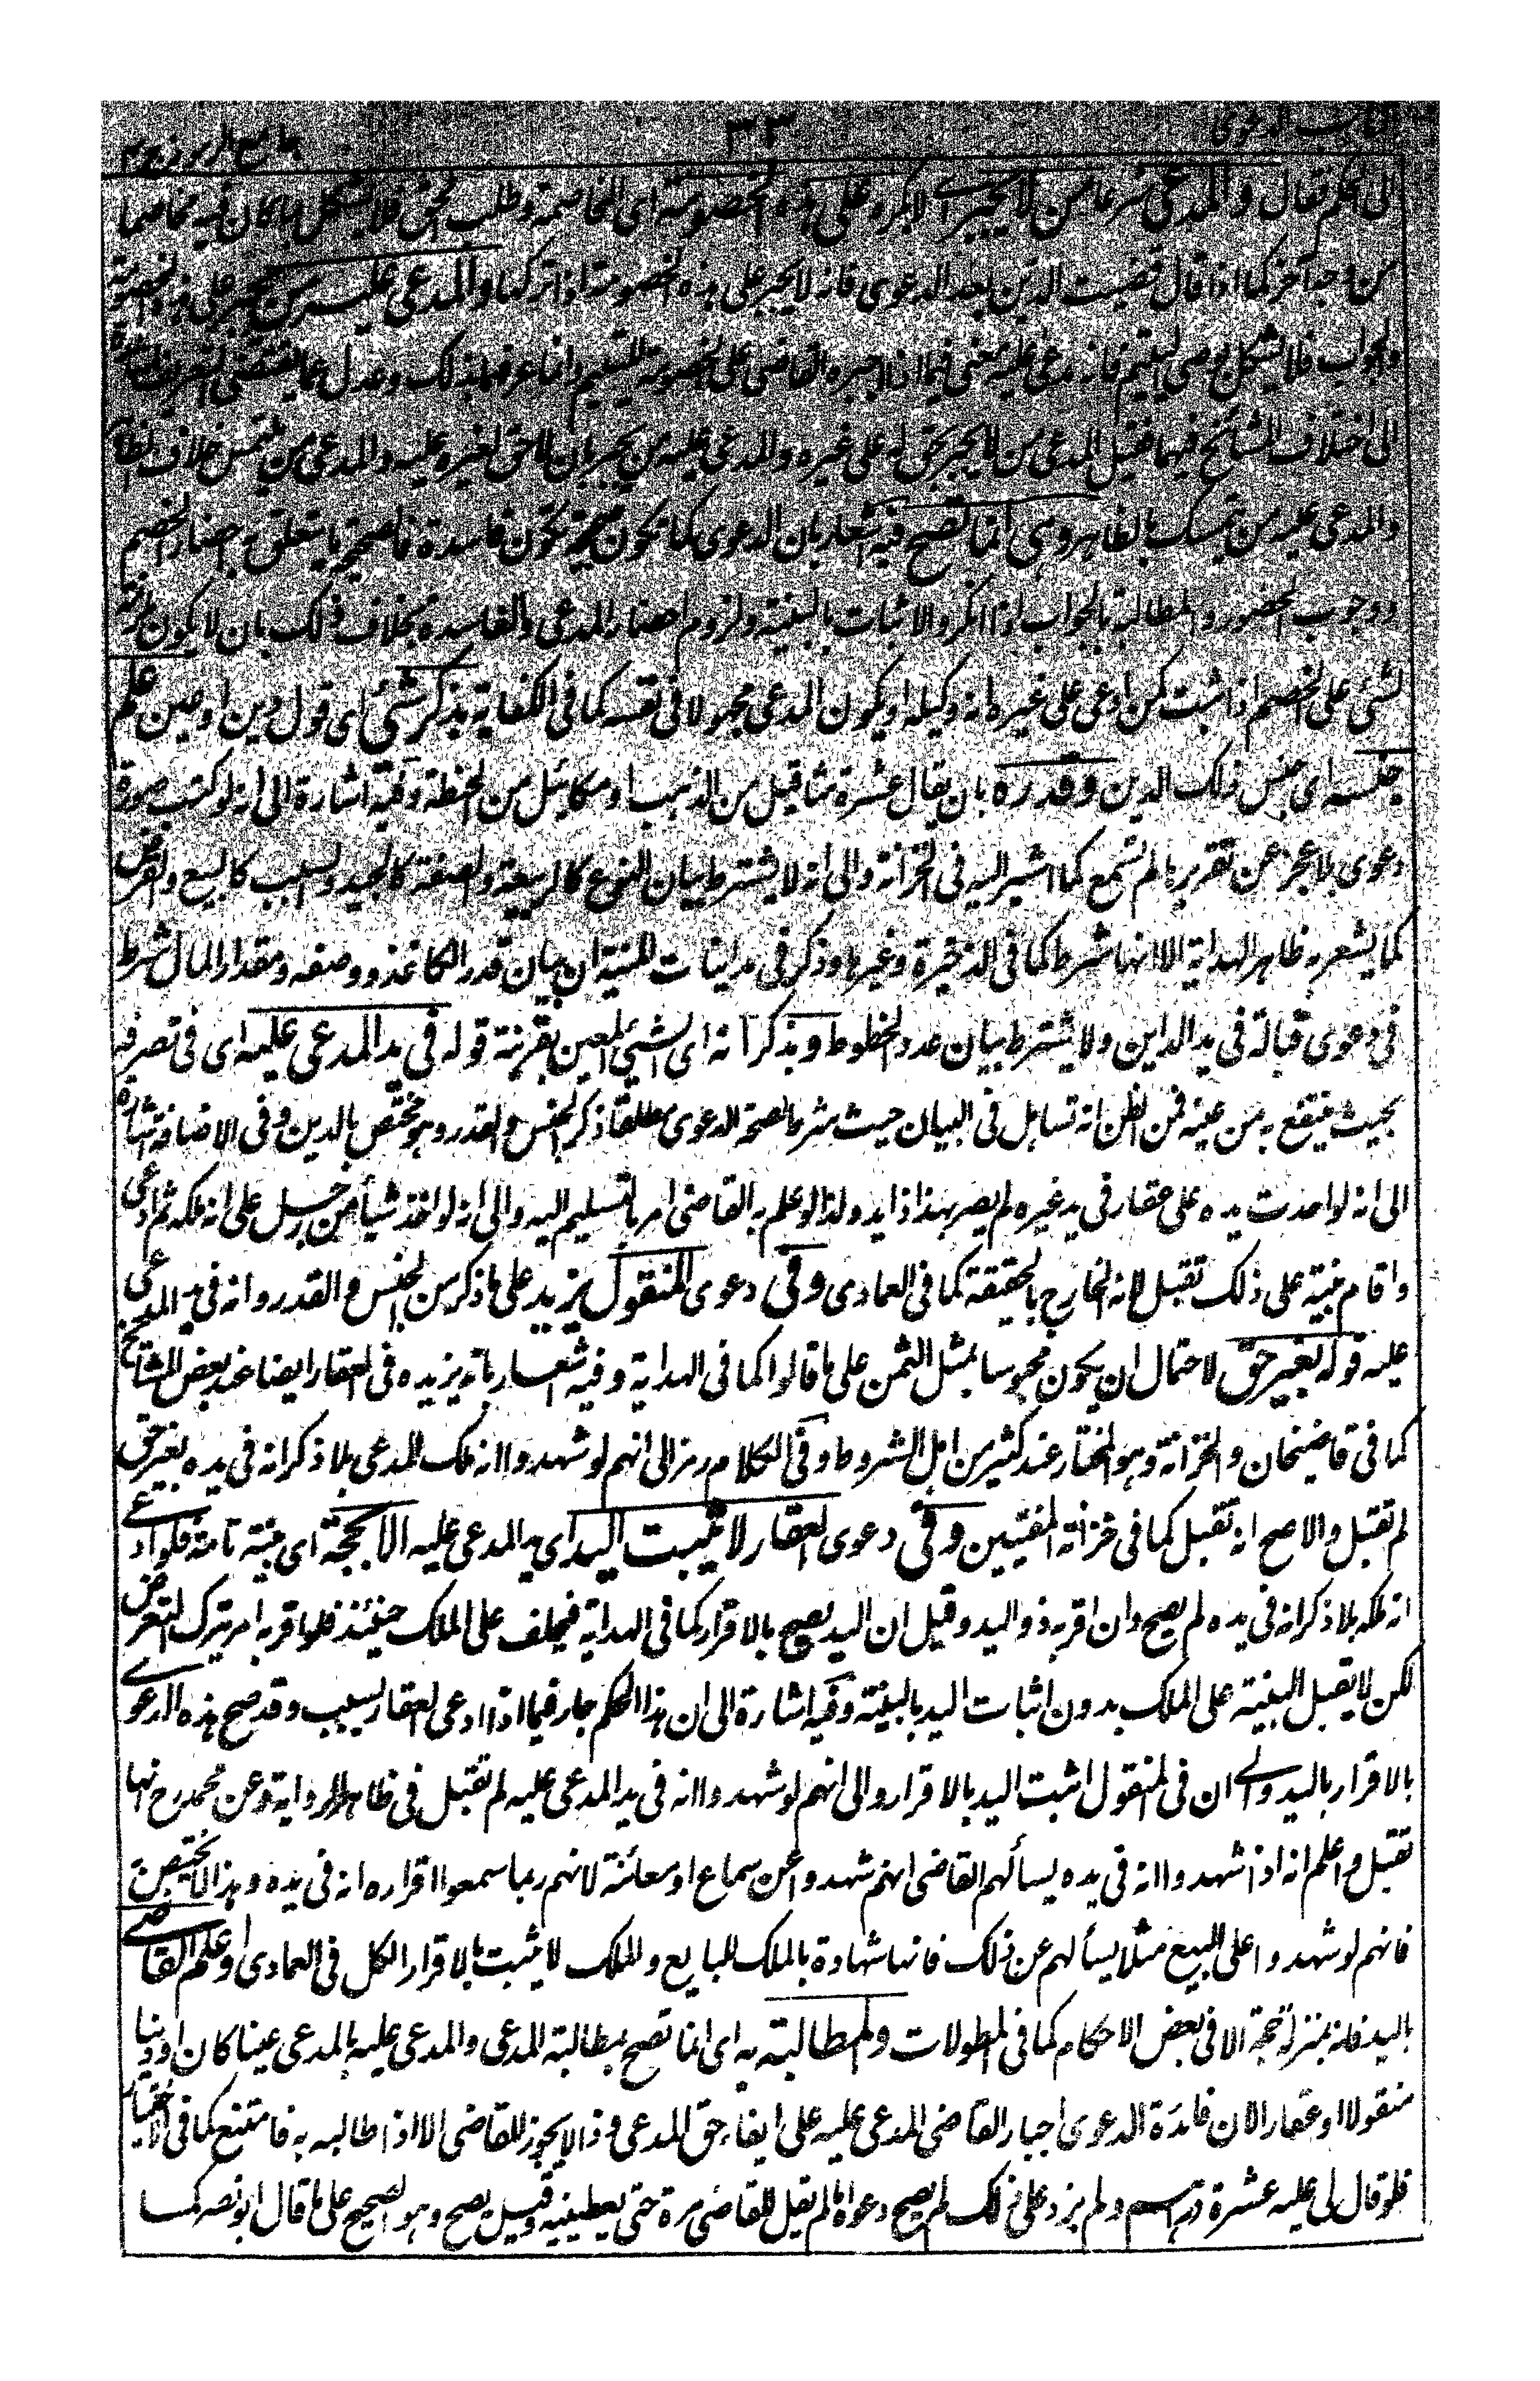 كتاب الدعوى ٣٣ جامع الرموز
الى الحكم فقال والمدعي شرعا من لا يجبر اى لا يكره على هذه الخصومة اى المخاصمة وطلب الحق فلا يشكل بما كان فيه مخاصما
من وجه آخر كما اذا قال قضيت الدين بعد الدعوى فانه لا يجبر على هذه الخصومة اذا تركها والمدعى عليه من يجبر على هذه الخصومة
والجواب فلا يشكل بوصي اليتيم فانه مدعى عليه معنى فيما اذا اجبره القاضى على الخصومة لليتيم وانما عرفهما بذلك وعدل عما يقتضى التعريف اشارة
الى اختلاف المشائخ فيهما فقيل المدعى من لا يخبر بحق له على غيره والمدعى عليه من يخبر بان لا حق لغيره عليه والمدعى من يلتمس خلاف الظاهر
والمدعى عليه من يتمسك بالظاهر وهى انما تصح فيه اشعار بان الدعوى كما تكون صحيحة تكون فاسدة فالصحيحة ما يتعلق به احضار الخصم
ووجوب الحضور والمطالبة بالجواب اذا انكر والاثبات بالبينة ولزوم احضار المدعى والفاسدة بخلاف ذلك بان لا يكون ملزمة
لشئ على الخصم اذا ثبت كمن ادعى على غيره انه وكيله او يكون المدعى مجهولا فى نفسه كما فى الكفاية بذكر شئ اى قول دين او عين علم
جنسه اى جنس ذلك الدين وقدره بان يقال عشرة مثاقيل من الذهب او مكائيل من الحنطة وفيه اشارة الى انه لو كتب صورة
دعوى بلا عجز عن تقريرها لم تسمع كما اشير اليه فى الخزانة والى انه لا يشترط بيان النوع كالربيعية والصفة كالجيد والسبب كالبيع والقرض
كما يشعر به ظاهر الهداية الا انها شرط كما فى الذخيرة وغيرها وذكر فى مداينات المنية ان بيان قدر الكاغذ ووصفه ومقدار المال شرط
فى دعوى قبالة فى يد الداين ولا يشترط بيان عدد الخطوط وبذكر انه اى الشئ المعين بقرينة قوله فى يد المدعى عليه اى فى تصرفه
بحيث ينتفع به من عينه فمن الظن انه تساهل فى البيان حيث شرط لصحة الدعوى مطلقا ذكر الجنس والقدر وهو مختص بالدين وفى الاضافة اشارة
الى انه لو احدث يده على عقار فى يد غيره لم يصر بهذا ذا يد ولذا لو علم به القاضى امر بالتسليم اليه والى انه لو اخذ شيأ من رجل على انه ملكه ثم ادعى
واقام بينة على ذلك تقبل لانه الخارج بالحقيقة كما فى العمادى وفى دعوى المنقول يزيد على ما ذكر من الجنس والقدر وانه فى يد المدعى
عليه قوله بغير حق لاحتمال ان يكون محبوسا بمثل الثمن على ما قالوا كما فى الهداية وفيه اشعار بانه يزيده فى العقار ايضا عند بعض المشائخ
كما فى قاضيخان والخزانة وهو المختار عند كثير من اهل الشروط وفى الكلام رمز الى انهم لو شهدوا انه ملك المدعى بلا ذكر انه فى يده بغير حق
لم تقبل والاصح انه تقبل كما فى خزانة المفتيين وفى دعوى العقار لا تثبت اليد اى يد المدعى عليه الا بحجة اى بينة تامة فلو ادعى
انه ملكه بلا ذكر انه فى يده لم يصح وان اقر به ذو اليد وقيل ان اليد يصح بالاقرار كما فى الهداية فيحلف على الملك حينئذ فلو اقر به امر بترك التعرض
لكن لا يقبل البينة على الملك بدون اثبات اليد بالبينة وفيه اشارة الى ان هذا الحكم جار فيما اذا ادعى العقار بسبب وقد صح هذه الدعوى
بالاقرار باليد والى ان فى المنقول اثبت اليد بالاقرار والى انهم لو شهدوا انه فى يد المدعى عليه لم تقبل فى ظاهر الرواية وعن محمد رح انها
تقبل واعلم انه اذا شهدوا انه فى يده يسألهم القاضى انهم شهدوا عن سماع او معائنة لانهم ربما سمعوا اقراره انه فى يده وهذا لا يختص به
فانهم لو شهدوا على البيع مثلا يسألهم عن ذلك فانها شهادة بالملك للبايع والملك لا يثبت بالاقرار الكل فى العمادى او علم القاضى
باليد فانه بمنزلة حجة الا فى بعض الاحكام كما فى المطولات والمطالبة به اى انما تصح بمطالبة المدعى والمدعى عليه بالمدعى عينا كان او دينا
منقولا او عقارا لان فائدة الدعوى اجبار القاضى المدعى عليه على ايفاء حق المدعى وذا لا يجوز للقاضى الا اذا طالبه به فامتنع كما فى الاختيار
فلو قال لى عليه عشرة دراهم ولم يزد على ذلك لم يصح دعواه ما لم يقل للقاضى مره حتى يعطينيه وقيل يصح وهو الصحيح على ما قال ابو نصر كما